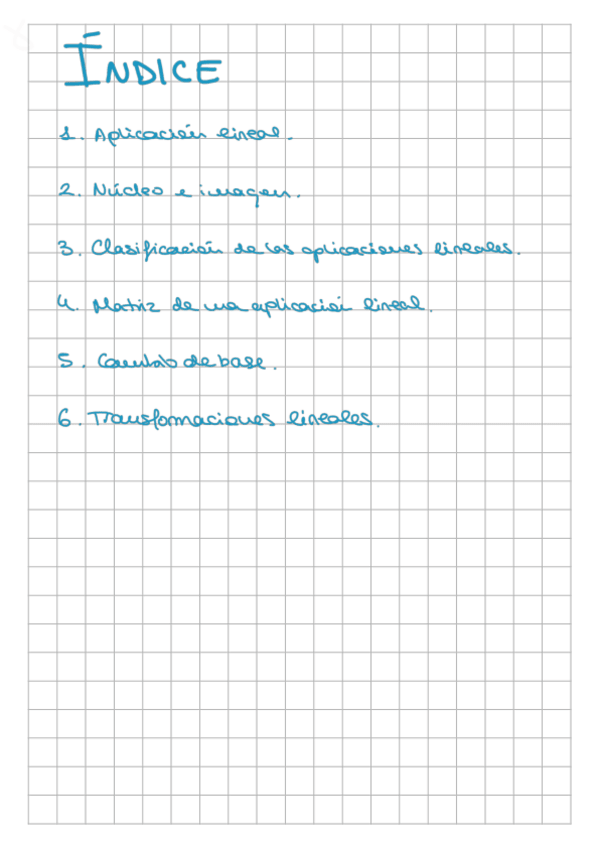 ÍNDICE
1. Aplicación lineal.
2. Núcleo e imagen.
3. Clasificación de las aplicaciones lineales.
4. Matriz de una aplicación lineal.
5. Cambio de base.
6. Transformaciones lineales.